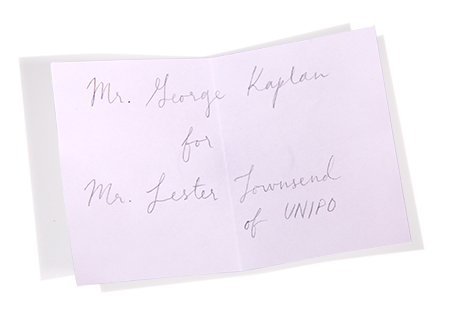 Mr. George Kaplan
for
Mr. Lester Townsend
of UNIPO